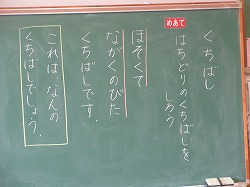 くちばし
めあて
はちどりのくちばしを
しろう
ほそくて
ながくのびた
くちばしです。
これは、なんの
くちばしでしょう。